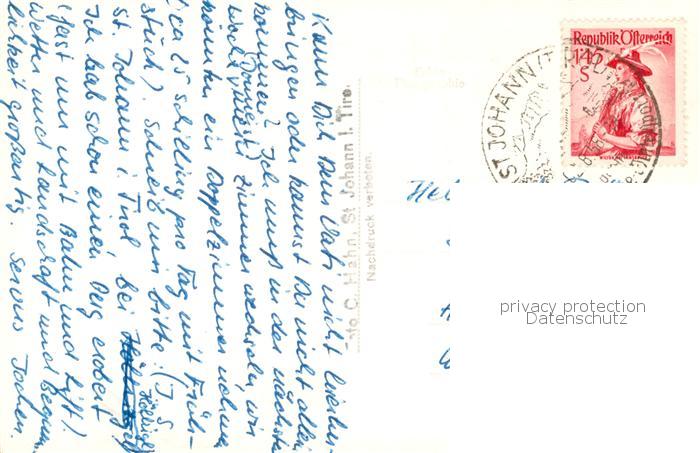 Kann Dich Dein Vater nicht hierher-
bringen oder kannst Du nicht allein
kommen? Ich muß in der nächsten
Woche (Donnerst) Zimmer wechseln, wir
könnten ein Doppelzimmer nehmen
(ca 25 Schilling pro Tag mit Früh-
stück). Schreib mir bitte: (J. S.
St. Johann i. Tirol bei
Ich hab schon einen Berg erobert
(fast nur mit Bahn und Lift!)
Wetter und Landschaft und Bequem-
lichkeit großartig. Servus Jochen
Foto C. Hahn, St. Johann i. Tirol
Nachdruck verboten.
Republik Österreich
1·45
S
ST JOHANN
privacy protection
Datenschutz